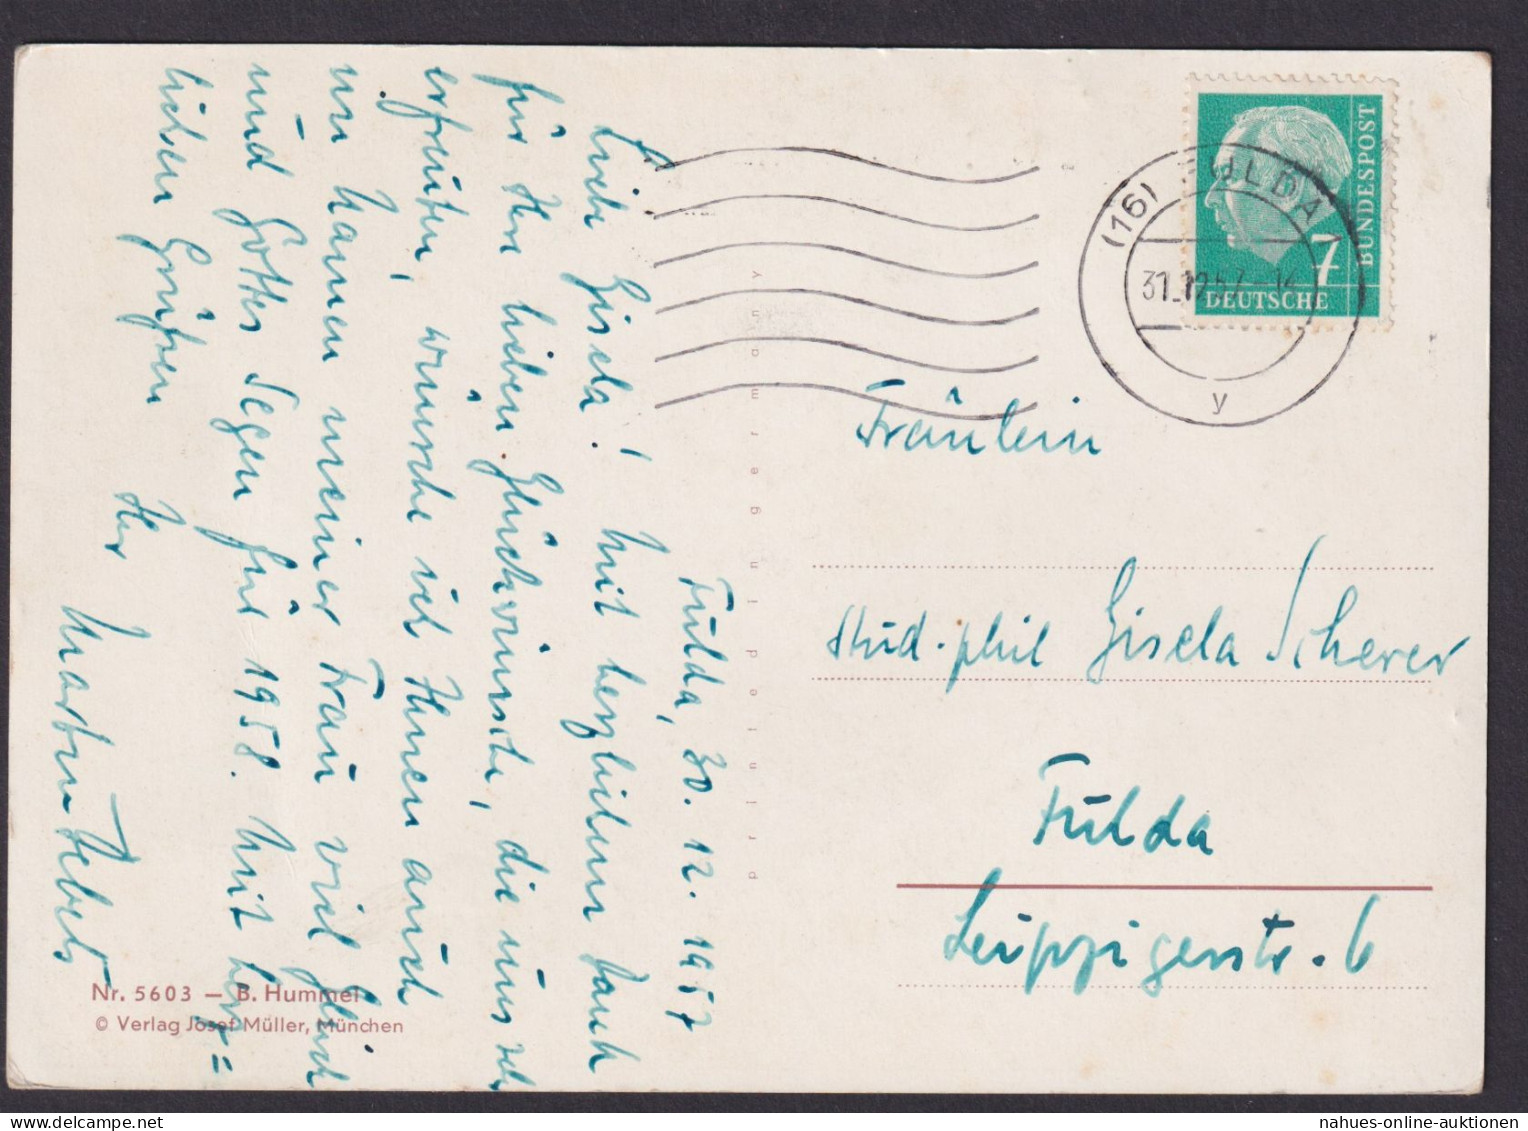 Fulda, 30. 12. 1957
Liebe Gisela! Mit herzlichem Dank
für Ihre lieben Glückwünsche, die uns sehr
erfreuten, wünsche ich Ihnen auch
im Namen meiner Frau viel Glück
und Gottes Segen für 1958. Mit herz=
lichen Grüßen
Ihr
Nr. 5603 – B. Hummel
© Verlag Josef Müller, München
(16) FULDA
31.12.57-14
y
7
DEUTSCHE
BUNDESPOST
Fräulein
stud. phil Gisela Scherer
Fulda
Leipzigerstr. 6
nahues-online-auktionen